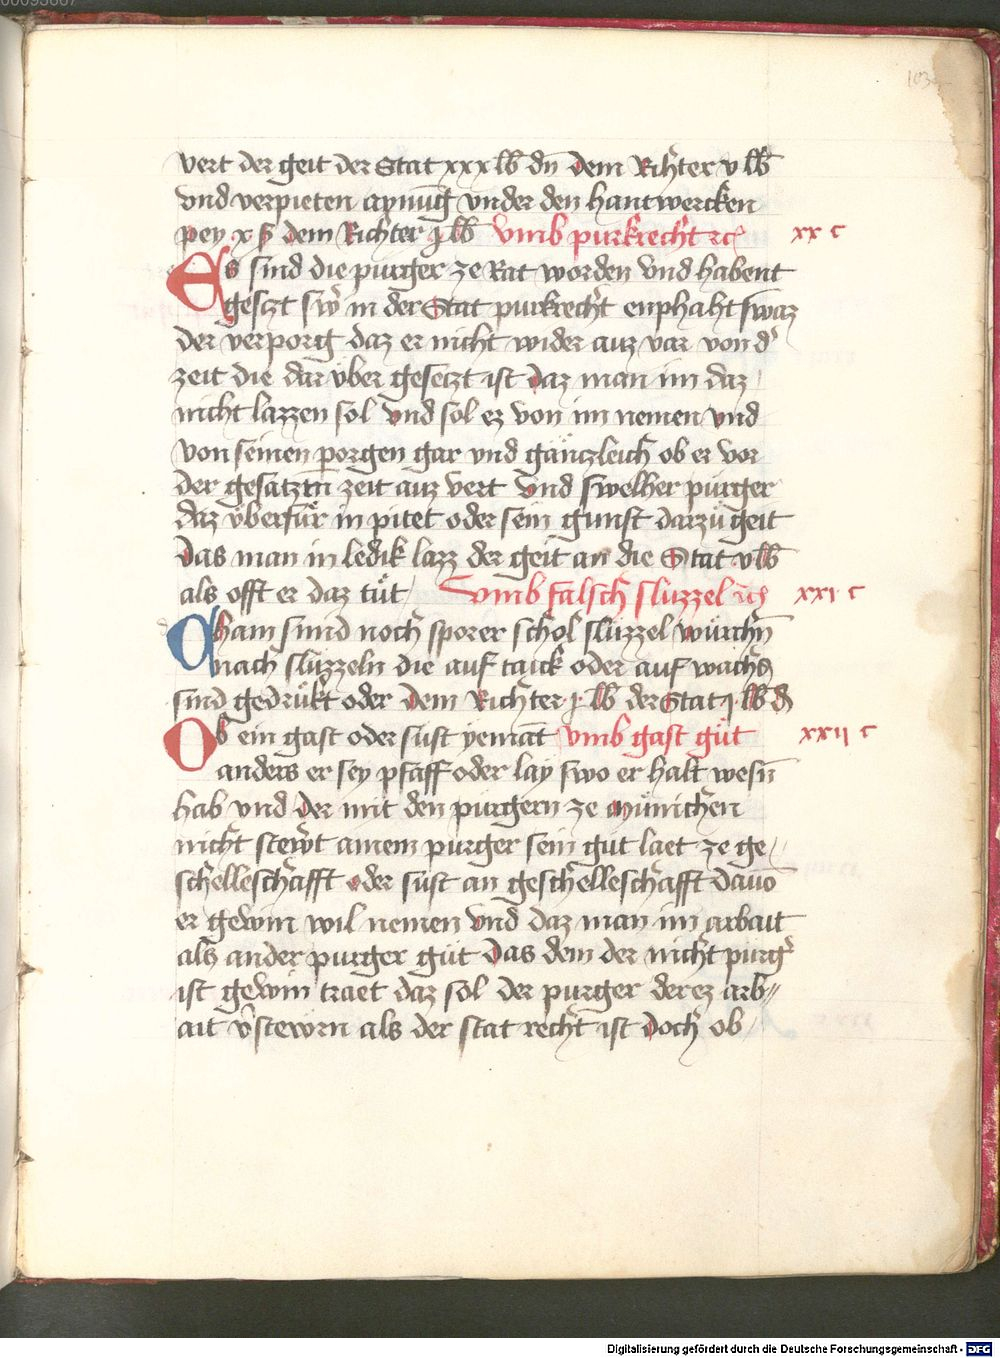 103
vert der geit der Stat xxx lb dn dem Richter v lb
vnd verpieten aynūg vnder den hantwercken
pey x ß dem Richter j lb Vmb purkrecht rc xx c
Es sind die purger ze Rat worden vnd habent
gesetzt sw̉ in der Stat purkrecht enphaht swaz
der verporg daz er nicht wider auz var von d̉
zeit die dar vber gesetzt ist daz man im daz
nicht lazzen sol vnd sol ez von im nemen vnd
von seinen porgen gar vnd gäntzleich ob er vor
der gesatztn̄ zeit auz vert vnd swelher purger
daz vberfür in pitet oder sein gunst darzů geit
Das man in ledik lazz der geit an die Stat v lb
als offt er daz tůt Vmb falsch sluzzel rc xxi c
Ab ain smid noch sporer schol sluzzel würchn̄
nach sluzzeln die auf taick oder auf wachs
sind gedrükt oder dem Richter j lb der Stat j lb d
Ob ein gast oder sust yemāt Vmb gast gůt xxii c
anders er sey pfaff oder lay swo er halt wesn̄
hab vnd der mit den purgern ze münichen
nicht stewrt ainem purger sein gůt laet ze ge
schelleschafft oder sust an geschelleschafft dauō
er gewin wil nemen vnd daz man im arbait
als ander purger gůt Das dem der nicht purg̉
ist gewin traet daz sol der purger der ez arb〃
ait v̉stewrn als der stat recht ist Doch ob
Digitalisierung gefördert durch die Deutsche Forschungsgemeinschaft - DFG